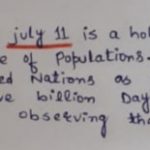 july 11 is a hol
e of Populations.
ed Nations as
ve billion Day
observing tha